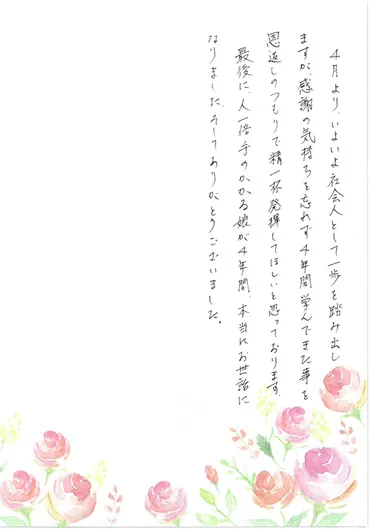 4月より、いよいよ社会人として一歩を踏み出し
ますが、感謝の気持ちを忘れず4年間学んできた事を
恩返しのつもりで精一杯発揮してほしいと思っております。
最後に、人一倍手のかかる娘が4年間、本当にお世話に
なりました。そしてありがとうございました。